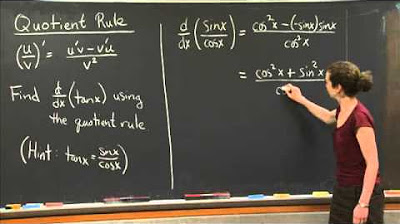 Quotient Rule
(u/v)' = (u'v - v'u)/v²
Find d/dx (tan x) using
the quotient rule
(Hint: tan x = sin x/cos x)
d/dx (sin x/cos x) = (cos² x - (-sin x) sin x)/cos² x
= (cos² x + sin² x)/c